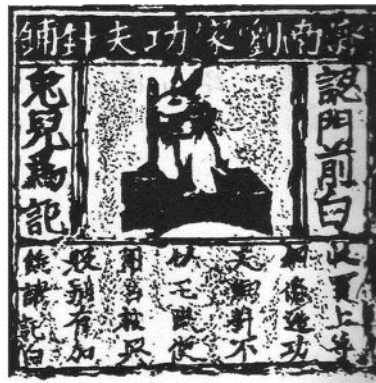 濟南劉家功夫針鋪
認門前白
兔兒爲記
收買上等
鋼條造功
夫細針不
宅院使
用
販別有加
饒請記白